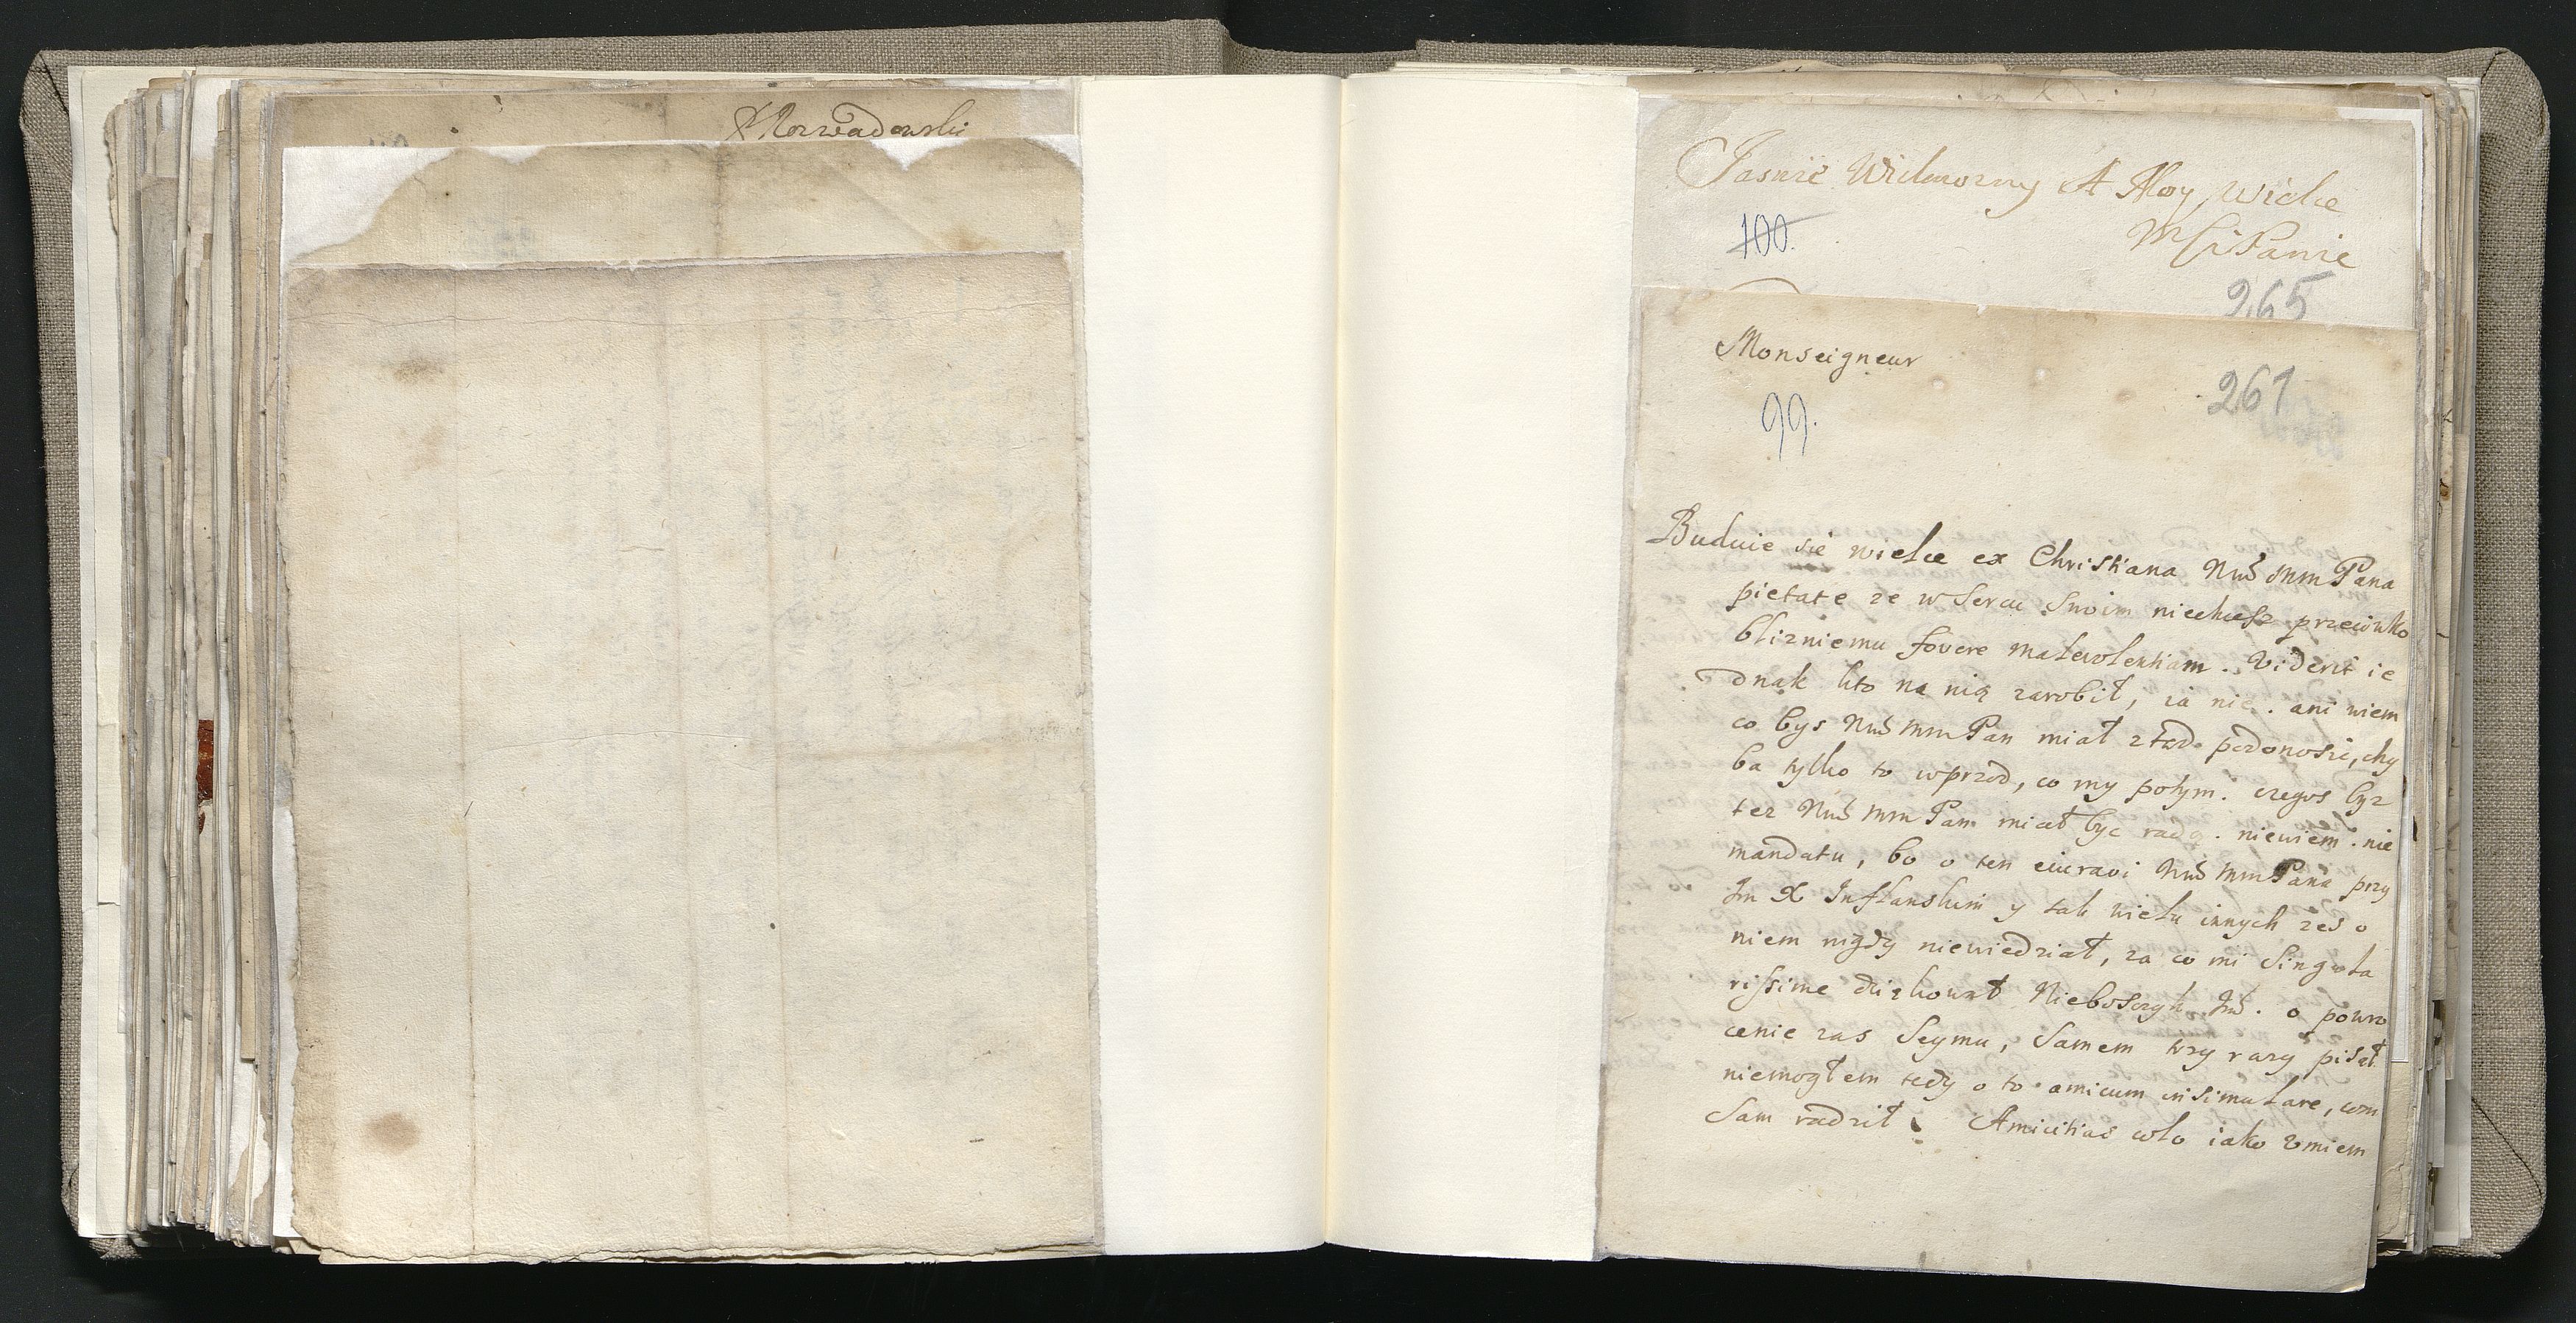 Rozwadowski
Jasnie Wielmozny A Moy Wielce
Mści Panie
100.
265
Monseigneur
261
99.
Buduie sie wielce ex Christiana Mm Pana
pietate ze w sercu swoim niechcesz przeciwko
blizniemu fovere malevolentiam. Viderit ie
dnak kto na nią zarobił, ia nie. ani wiem
co bys Mm Pan miał ztąd podonosic, chy
ba tylko to wprzod, co my potym. czegos byz
tez Mm Pan miał byc radą. niewiem. nie
mandatu, bo o ten eiuravi Mm Pana przy
Im X Inflanskim y tak wielu innych zes o
niem nigdy niewiedział, za co mi singula
rissime dziękował Nieboszczyk. o powro
cenie zas Seymu, Samem trzy razy pisał
niemogłem tedy o to amicum insimulare, com
Sam radził. Amicitias colo iako umiem